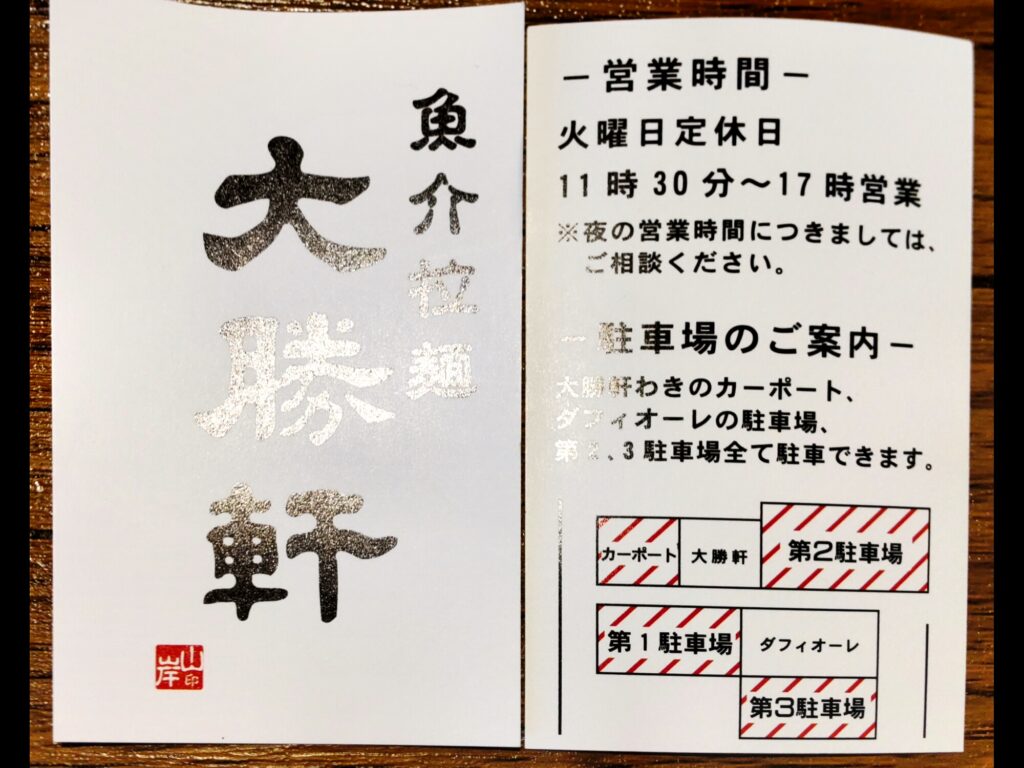 魚介拉麺
大勝軒
山岸印
－営業時間－
火曜日定休日
11時30分～17時営業
※夜の営業時間につきましては、
ご相談ください。
－駐車場のご案内－
大勝軒わきのカーポート、
ダフィオーレの駐車場、
第2、3駐車場全て駐車できます。
カーポート
大勝軒
第2駐車場
第1駐車場
ダフィオーレ
第3駐車場